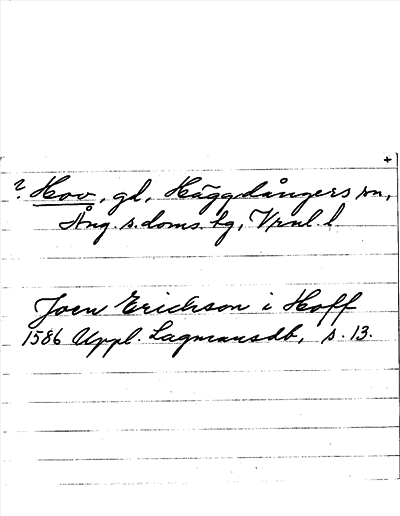 +
? Hov, gd, Häggdångers sn,
Ång. s. doms. hg, Vrnl. l.
Joen Erichson i Hoff
1586 Uppl. Lagmansdb, s. 13.